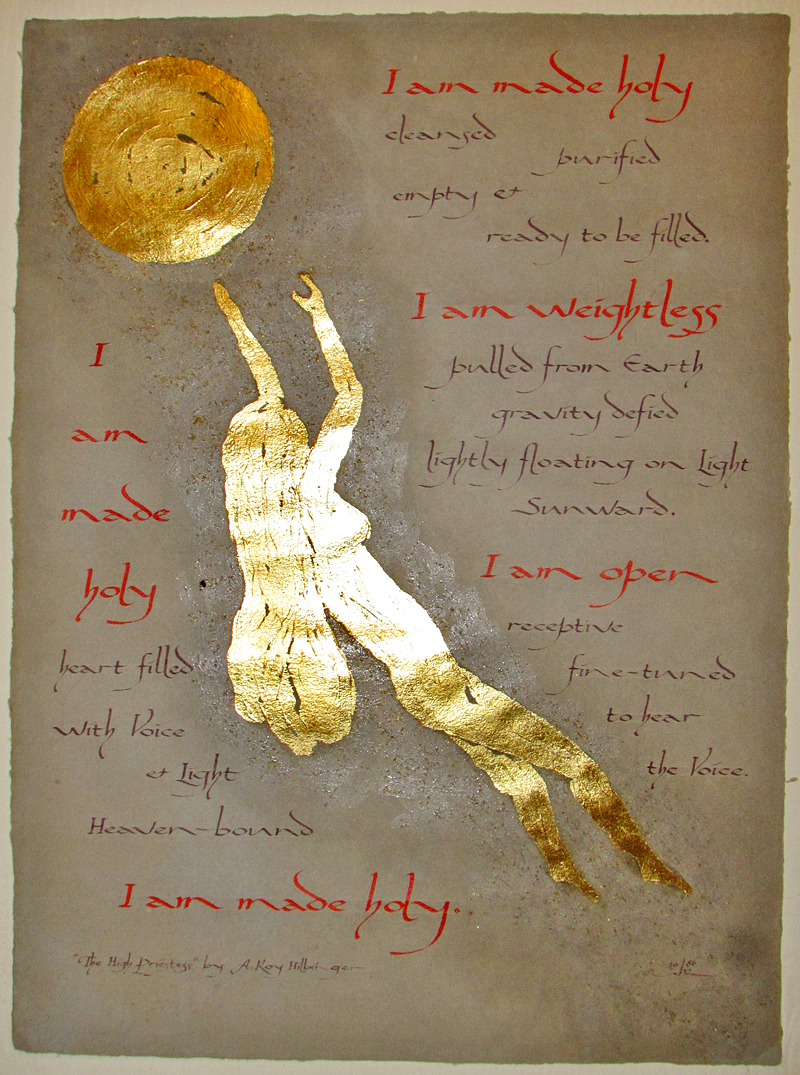 I am made holy
cleansed
purified
empty &
ready to be filled.
I am weightless
pulled from Earth
gravity defied
lightly floating on Light
Sunward.
I am open
receptive
fine-tuned
to hear
the Voice.
I
am
made
holy
heart filled
with Voice
& Light
Heaven-bound
I am made holy.
"The High Priestess" by A. Roy Hilbinger